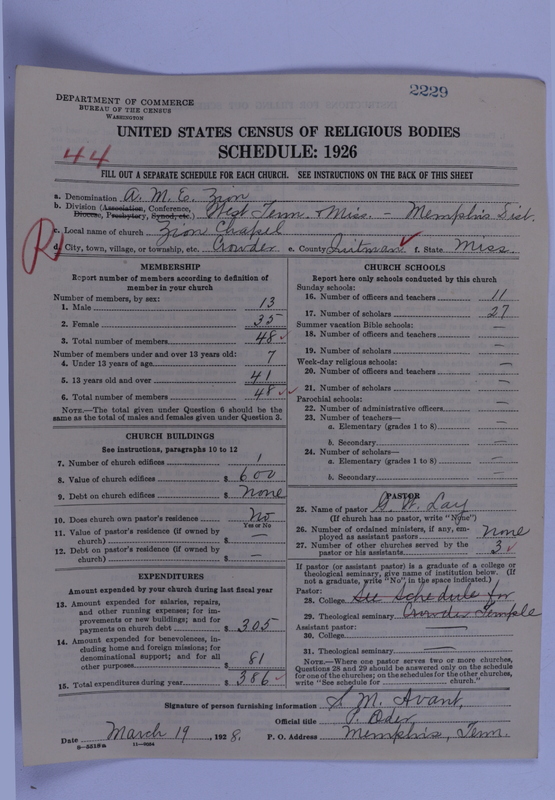 2229
DEPARTMENT OF COMMERCE
BUREAU OF THE CENSUS
WASHINGTON
UNITED STATES CENSUS OF RELIGIOUS BODIES
44
SCHEDULE: 1926
FILL OUT A SEPARATE SCHEDULE FOR EACH CHURCH. SEE INSTRUCTIONS ON THE BACK OF THIS SHEET
a. Denomination A. M. E. Zion
b. Division (Association, Conference, Diocese, Presbytery, Synod, etc.) West Tenn. & Miss. - Memphis Dist.
c. Local name of church Zion Chapel
R
d. City, town, village, or township, etc. Crowder e. County Quitman f. State Miss.
MEMBERSHIP
Report number of members according to definition of
member in your church
Number of members, by sex:
1. Male 13
2. Female 35
3. Total number of members 48
Number of members under and over 13 years old:
4. Under 13 years of age 7
5. 13 years old and over 41
6. Total number of members 48
NOTE.—The total given under Question 6 should be the
same as the total of males and females given under Question 3.
CHURCH BUILDINGS
See instructions, paragraphs 10 to 12
7. Number of church edifices 1
8. Value of church edifices $ 600
9. Debt on church edifices $ None
10. Does church own pastor's residence? No
Yes or No
11. Value of pastor's residence (if owned by
church) $ —
12. Debt on pastor's residence (if owned by
church) $ —
EXPENDITURES
Amount expended by your church during last fiscal year
13. Amount expended for salaries, repairs,
and other running expenses; for im-
provements or new buildings; and for
payments on church debt $ 305
14. Amount expended for benevolences, in-
cluding home and foreign missions; for
denominational support; and for all
other purposes $ 81
15. Total expenditures during year $ 386
CHURCH SCHOOLS
Report here only schools conducted by this church
Sunday schools:
16. Number of officers and teachers 11
17. Number of scholars 27
Summer vacation Bible schools:
18. Number of officers and teachers —
19. Number of scholars —
Week-day religious schools:
20. Number of officers and teachers —
21. Number of scholars —
Parochial schools:
22. Number of administrative officers —
23. Number of teachers—
a. Elementary (grades 1 to 8) —
b. Secondary —
24. Number of scholars—
a. Elementary (grades 1 to 8) —
b. Secondary —
PASTOR
25. Name of pastor G. W. Lay
(If church has no pastor, write "None")
26. Number of ordained ministers, if any, em-
ployed as assistant pastors None
27. Number of other churches served by the
pastor or his assistants 3
If pastor (or assistant pastor) is a graduate of a college or
theological seminary, give name of institution below. (If
not a graduate, write "No" in the space indicated.)
Pastor:
28. College See Schedule for
29. Theological seminary Crowder Temple
Assistant pastor:
30. College —
31. Theological seminary —
NOTE.—Where one pastor serves two or more churches,
Questions 28 and 29 should be answered only on the schedule
for one of the churches; on the schedules for the other churches,
write "See schedule for church."
Signature of person furnishing information S. M. Avant,
Official title P. Elder
Date March 19, 1928. P. O. Address Memphis, Tenn.
8—5518a 11—9284